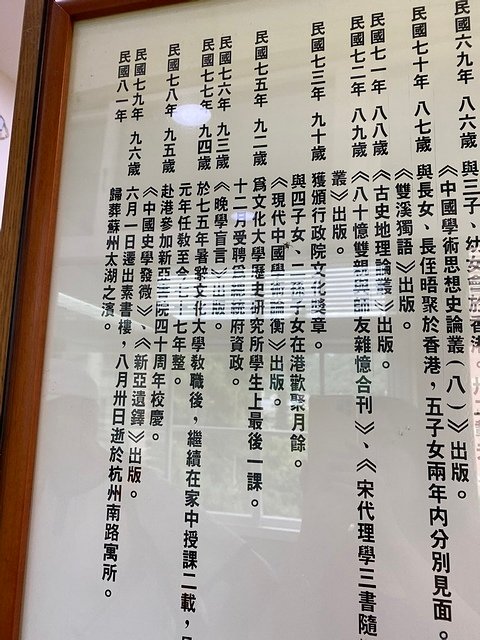 民國六九年 八六歲 與三子、幼女會於香港。
《中國學術思想史論叢(八)》出版。
民國七十年 八七歲 與長女、長侄晤聚於香港，五子女兩年內分別見面。
《雙溪獨語》出版。
民國七一年 八八歲 《古史地理論叢》出版。
民國七二年 八九歲 《八十憶雙親與師友雜憶合刊》、《宋代理學三書隨
叢》出版。
民國七三年 九十歲 獲頒行政院文化獎章。
與四子女、二孫子女在港歡聚月餘。
《現代中國學術論衡》出版。
民國七五年 九二歲 為文化大學歷史研究所學生上最後一課。
十二月受聘為總統府資政。
民國七六年 九三歲 《晚學盲言》出版。
民國七七年 九四歲 於七五年暑辭文化大學教職後，繼續在家中授課二載，
元年任教至今七十七年整。
民國七八年 九五歲 赴港參加新亞書院四十周年校慶。
民國七九年 九六歲 《中國史學發微》、《新亞遺鐸》出版。
六月一日遷出素書樓，八月卅日逝於杭州南路寓所。
民國八一年 歸葬蘇州太湖之濱。